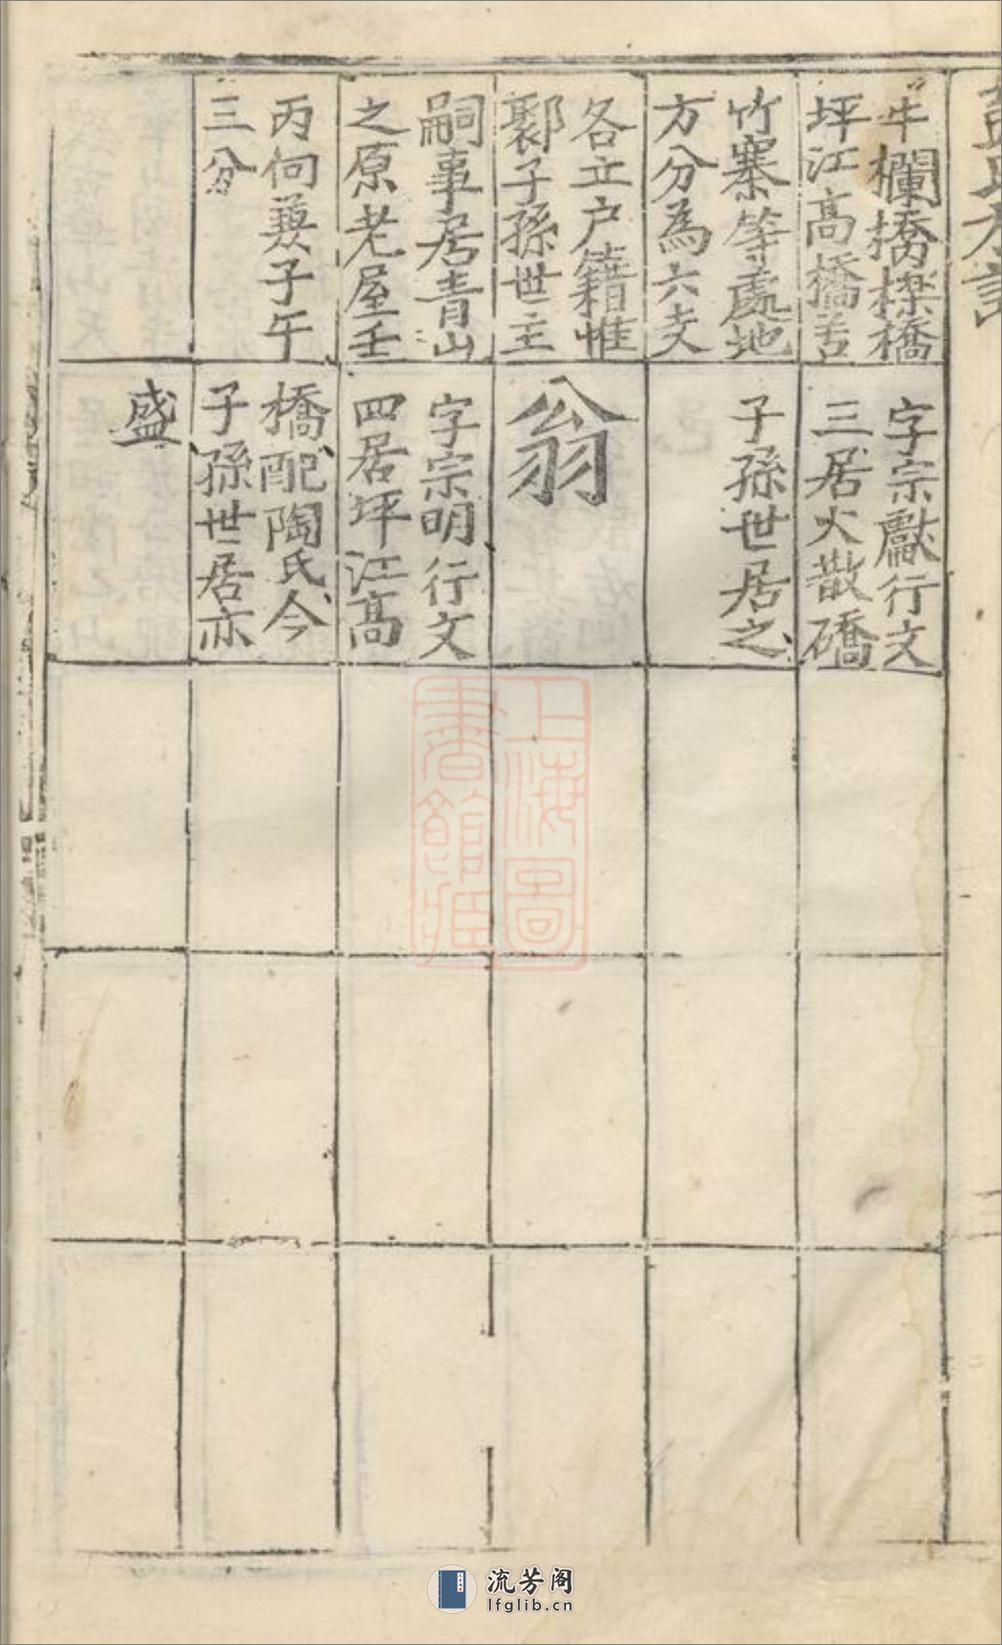 牛欄橋櫟橋
坪江高橋善
竹寨等處地
方分為六支
各立户籍惟
鄹子孫世主
嗣事居青山
之原老屋壬
丙向兼子午
三分
字宗獻行文
三居火散礄
子孫世居之
翁
字宗明行文
四居坪江高
橋配陶氏今
子孫世居亦
盛
上海圖
書館藏
流芳阁
lfglib.cn